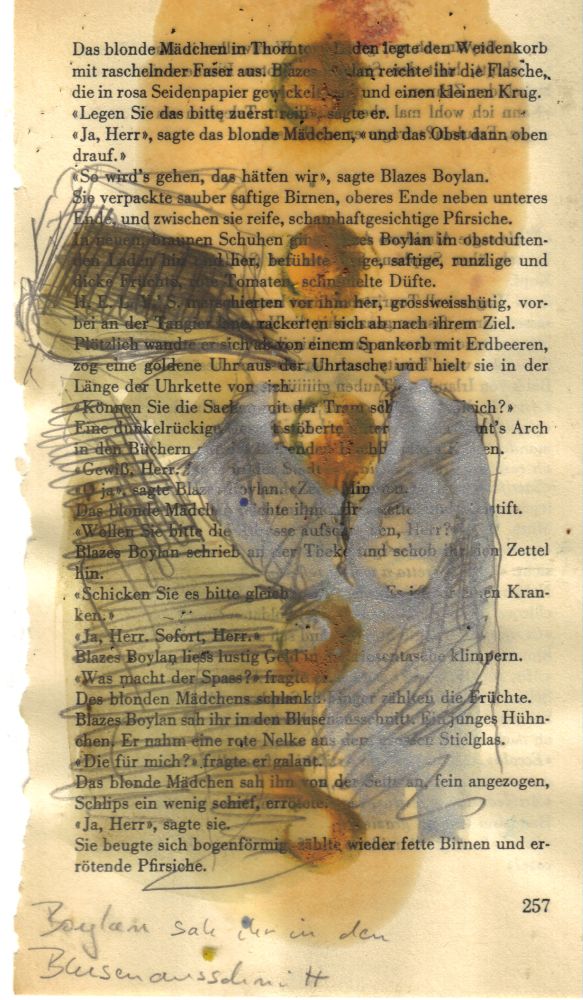 Das blonde Mädchen in Thornto Laden legte den Weidenkorb
mit raschelnder Faser aus. Blazes Boylan reichte ihr die Flasche,
die in rosa Seidenpapier gewickel und einen kleinen Krug.
«Legen Sie das bitte zuerst rein», sagte er.
«Ja, Herr», sagte das blonde Mädchen, «und das Obst dann oben
drauf.»
«So wird's gehen, das hätten wir», sagte Blazes Boylan.
Sie verpackte sauber saftige Birnen, oberes Ende neben unteres
Ende, und zwischen sie reife, schamhaftgesichtige Pfirsiche.
In neuen, braunen Schuhen ging Blazes Boylan im obstduften-
den Laden hin und her, befühlte saftige, runzlige und
dicke Früchte, rote Tomaten, schnüffelte Düfte.
H. E. L. Y. 'S. marschierten vor ihm her, grossweisshütig, vor-
bei an der Tangier lane, rackerten sich ab nach ihrem Ziel.
Plötzlich wandte er sich ab von einem Spankorb mit Erdbeeren,
zog eine goldene Uhr aus der Uhrtasche und hielt sie in der
Länge der Uhrkette von sich.
«Können Sie die Sachen mit der Tram gleich?»
Eine dunkelrückige stöberte unter 's Arch
in den Büchern
«Gewiß, Herr.
«O ja», sagte Blazes Boylan. «Zehn Minuten.
Das blonde Mädchen reichte ihm stift.
«Wollen Sie bitte die Adresse aufschreiben, Herr?»
Blazes Boylan schrieb an der Theke und schob ihr den Zettel
hin.
«Schicken Sie es bitte gleich Es ist für einen Kran-
ken.»
«Ja, Herr. Sofort, Herr.»
Blazes Boylan liess lustig Geld in der Hosentasche klimpern.
«Was macht der Spass?» fragte er.
Des blonden Mädchens schlanke Finger zählten die Früchte.
Blazes Boylan sah ihr in den Blusenausschnitt. Ein junges Hühn-
chen. Er nahm eine rote Nelke aus dem grossen Stielglas.
«Die für mich?» fragte er galant.
Das blonde Mädchen sah ihn von der Seite an, fein angezogen,
Schlips ein wenig schief, errötete.
«Ja, Herr», sagte sie.
Sie beugte sich bogenförmig, zählte wieder fette Birnen und er-
rötende Pfirsiche.
257
Boylan sah ihr in den
Blusenausschnitt